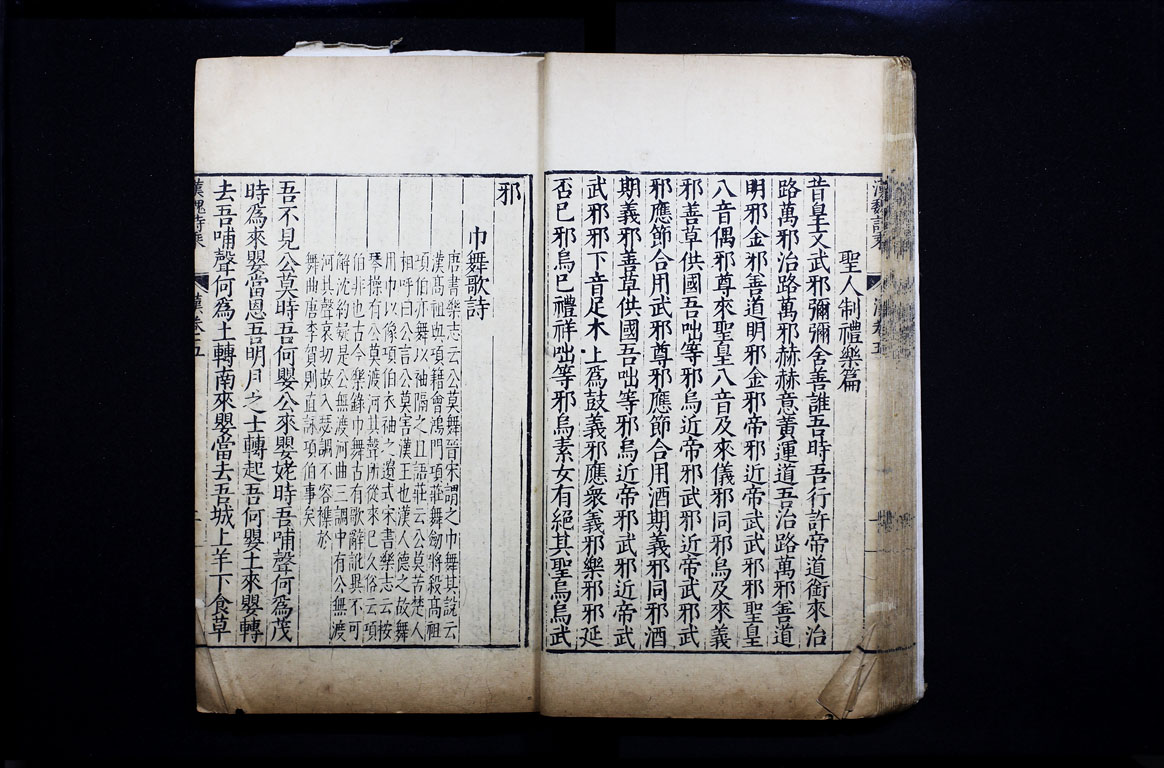 漢魏詩乘
漢卷五
聖人制禮樂篇
昔皇文武邪彌彌舍善誰吾時吾行許帝道銜來治
路萬邪治路萬邪赫赫意黃運道吾治路萬邪善道
明邪金邪善道明邪金邪帝邪近帝武武邪邪聖皇
八音偶邪尊來聖皇八音及來儀邪同邪烏及來義
邪善草供國吾咄等邪烏近帝邪武邪近帝武邪武
邪應節合用武邪尊邪應節合用酒期義邪同邪酒
期義邪善草供國吾咄等邪烏近帝邪武邪近帝武
武邪邪下音足木上爲鼓義邪應衆義邪樂邪邪延
否巳邪烏巳禮祥咄等邪烏素女有絕其聖烏烏武
邪
巾舞歌詩
唐書樂志云公莫舞晉宋謂之巾舞其說云
漢高祖與項籍會鴻門項莊舞劒將殺高祖
項伯亦舞以袖隔之且語莊云公莫苦楚人
相呼曰公言公莫害漢王也漢人德之故舞
用巾以像項伯衣袖之遺式宋書樂志云按
琴操有公莫渡河其聲所從來巳久俗云項
伯非也古今樂錄巾舞古有歌辭訛異不可
解沈約疑是公無渡河曲三調中有公無渡
河其聲哀切故入瑟調不容襍於
舞曲唐李賀則直詠項伯事矣
吾不見公莫時吾何嬰公來嬰姥時吾哺聲何爲茂
時爲來嬰當恩吾明月之士轉起吾何嬰土來嬰轉
去吾哺聲何爲土轉南來嬰當去吾城上羊下食草
漢魏詩乘
漢卷五